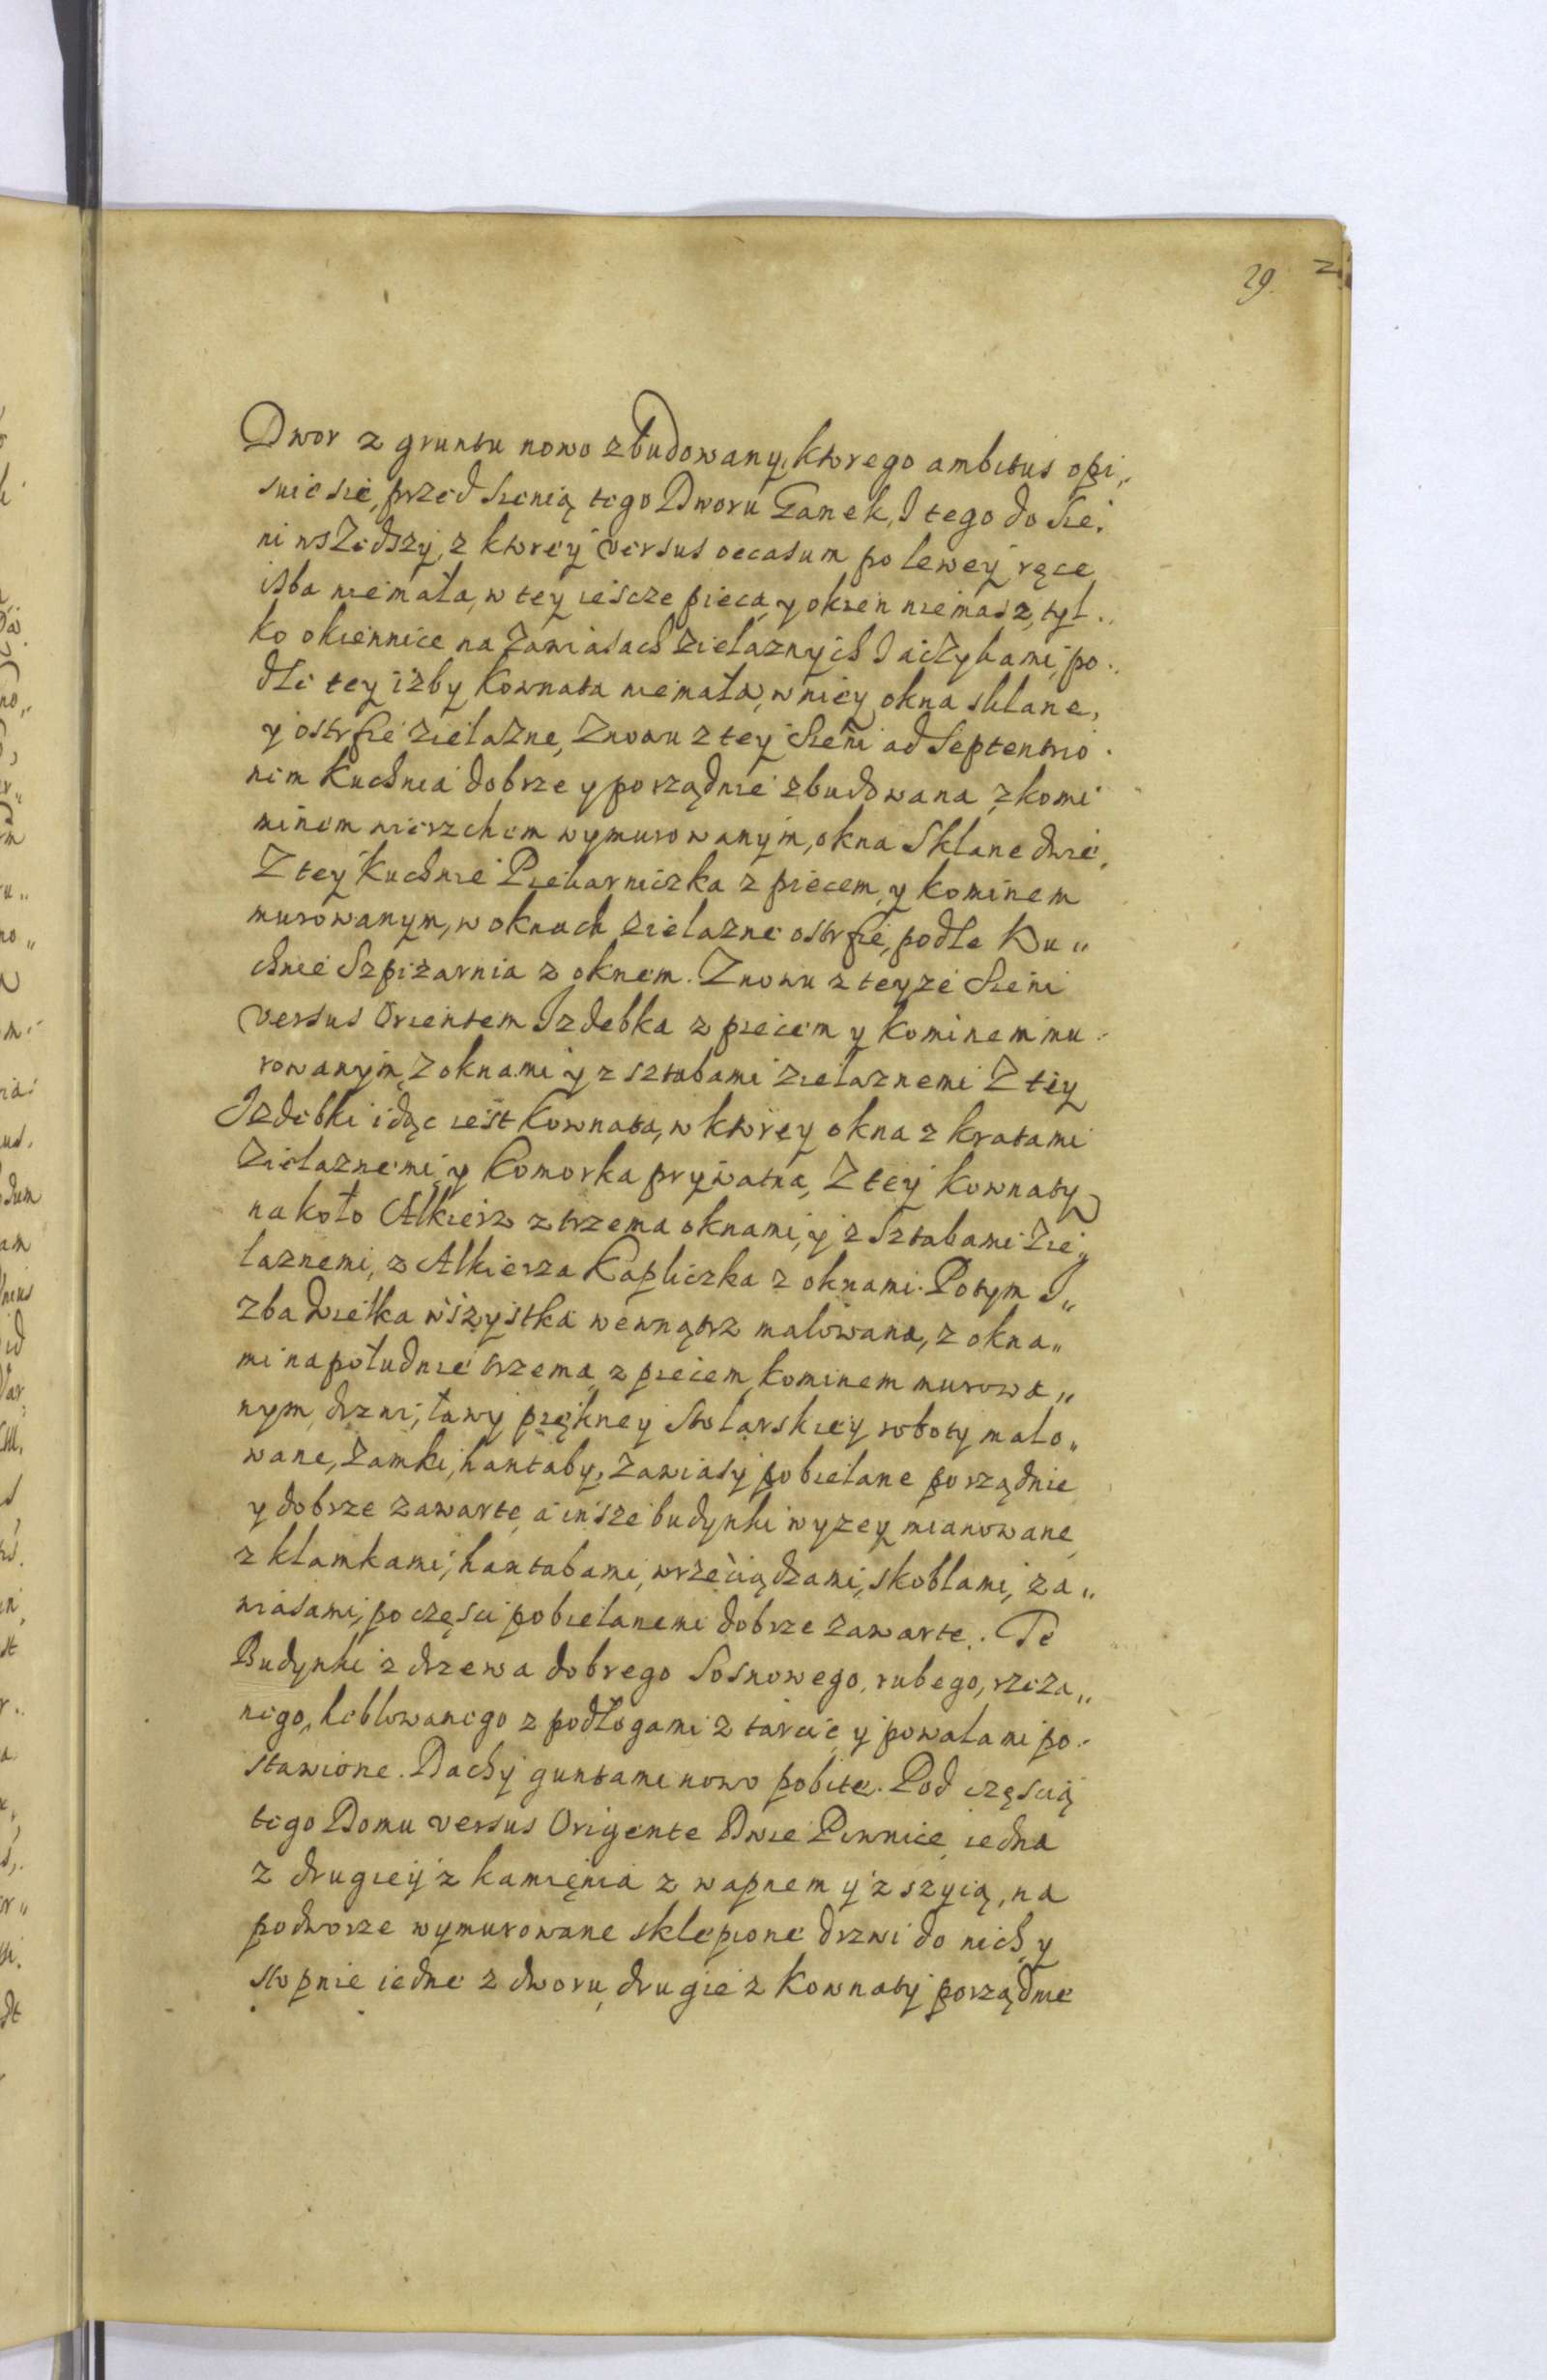 29.
Dwor z gruntu nowo zbudowany, ktorego ambitus opi„
suie sie, przed Sienią tego Dworu Ganek, S tego do Sie„
ni wszedszy, z ktorey versus occasum po lewey ręce
izba niemała, w tey iescze pieca y okien niemasz, tyl„
ko okiennice na Zawiasach Zielaznych S aczykami, po„
dle tey izby Kownata niemała, w niey okna sklane,
y ostrfie zielazne, Znowu z tey Sieni ad Septentrio„
nem Kuchnia dobrze y porządnie zbudowana z komi
minem wierzchem wymurowanym, okna Sklane dwie,
Z tey Kuchnie Piekarniczka z piecem, y kominem
murowanym, w oknach zielazne ostrfie, podle Ku„
chnie Szpizarnia z oknem. Znowu z teyze Sieni
versus Orientem Izdebka z piecem y kominem mu„
rowanym, z oknami y z sztabami zielaznemi Z tey
Izdebki idąc iest Kownata, w ktorey okna z kratami
Zielaznemi, y Komorka prywatna, Z tey kownaty
nakoło Alkierz z trzema oknami, y z Sztabami Zie„
laznemi, z Alkierza Kapliczka z oknami. Potym I„
zba Wielka wszystka wewnątrz malowana, z okna„
mi napołudnie trzema, z piecem, kominem murowa„
nym, drzwi, ławy piękney Stolarskiey roboty malo„
wane, Zamki, hantaby, Zawiasy pobielane porządnie
y dobrze zawarte, a insze budynki wyzey mianowane
z klamkami, hantabami, wrzeciądzami, skoblami, za„
wiasami, po częsci pobielanemi dobrze zawarte. Te
Budynki z drzewa dobrego Sosnowego, rubego, rzeza„
nego, heblowanego z podłogami z tarcic y powałami po„
stawione. Dachy guntami nowo pobite. Pod częscią
tego Domu versus Origente Dwie Piwnice, iedna
z drugiey z kamięnia z wapnem y z szyią, na
podworze wymurowane sklepione drzwi do nich, y
stopnie iedne z dworu, drugie z Kownaty porządnie